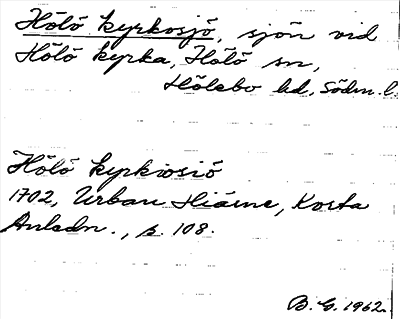 Hölö kyrkosjö, sjön vid
Hölö kyrka, Hölö sn,
Hölebo hd, Södm. l.
Hölö kyrkiosiö
1702, Urban Hiärne, Korta
Anledn., s. 108.
B. G. 1962.